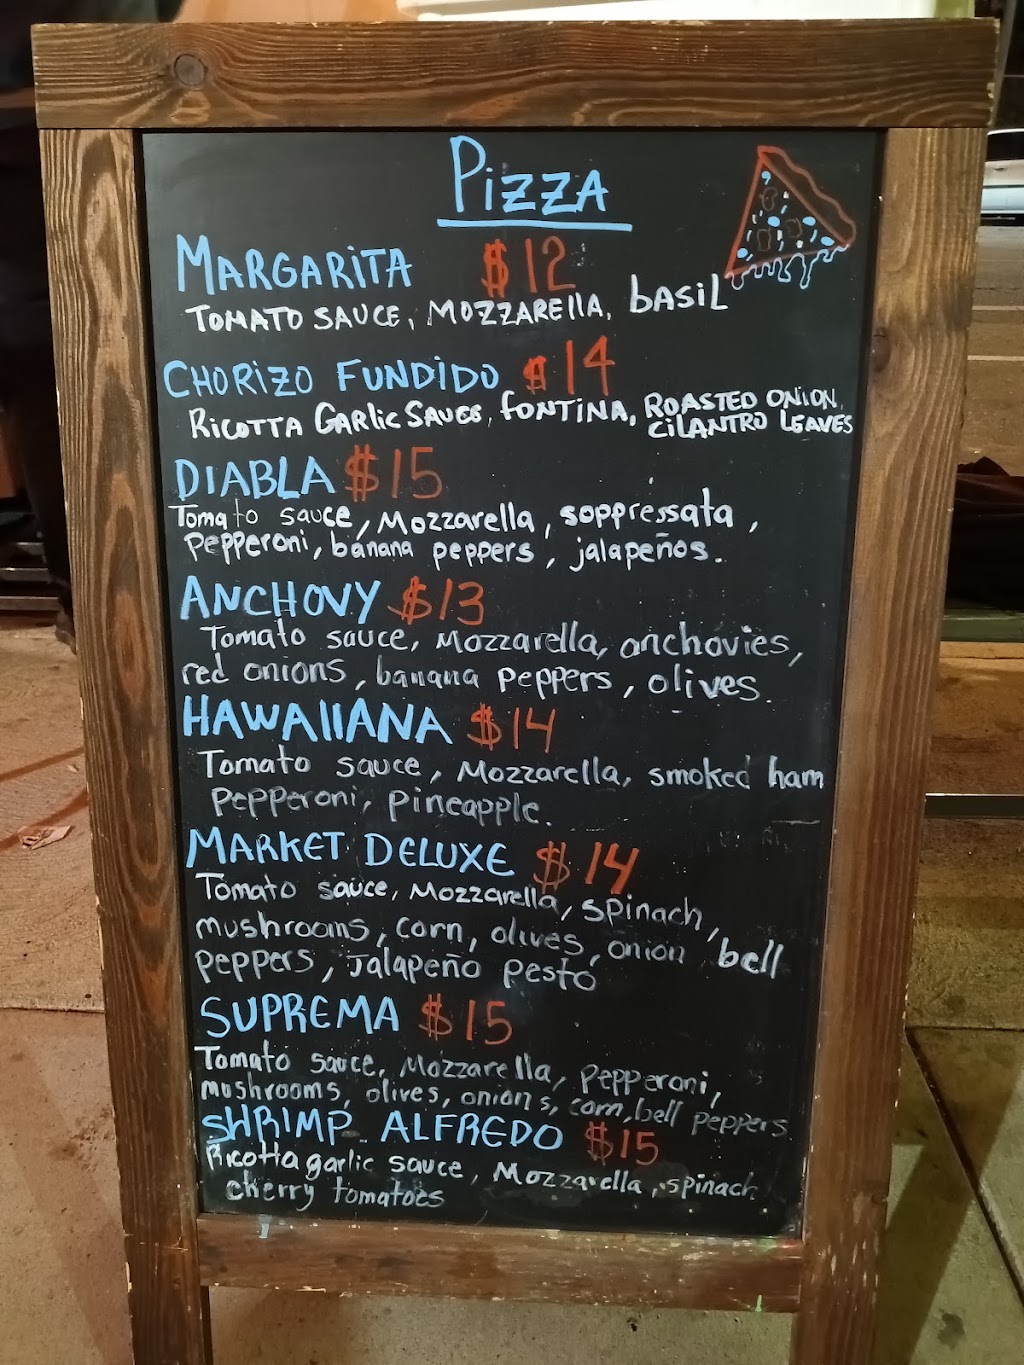 Pizza
MARGARITA $12
TOMATO SAUCE, MOZZARELLA, BASIL
CHORIZO FUNDIDO $14
RICOTTA GARLIC SAUCE, FONTINA, ROASTED ONION,
CILANTRO LEAVES
DIABLA $15
Tomato sauce, Mozzarella, soppressata,
Pepperoni, banana peppers, jalapeños.
ANCHOVY $13
Tomato sauce, Mozzarella, anchovies,
red onions, banana peppers, olives.
HAWAIIANA $14
Tomato sauce, Mozzarella, smoked ham
pepperoni, pineapple.
MARKET DELUXE $14
Tomato sauce, Mozzarella, spinach,
mushrooms, corn, olives, onion, bell
peppers, Jalapeño pesto
SUPREMA $15
Tomato sauce, Mozzarella, pepperoni,
mushrooms, olives, onions, corn, bell peppers
SHRIMP ALFREDO $15
Ricotta garlic sauce, Mozzarella, spinach,
cherry tomatoes